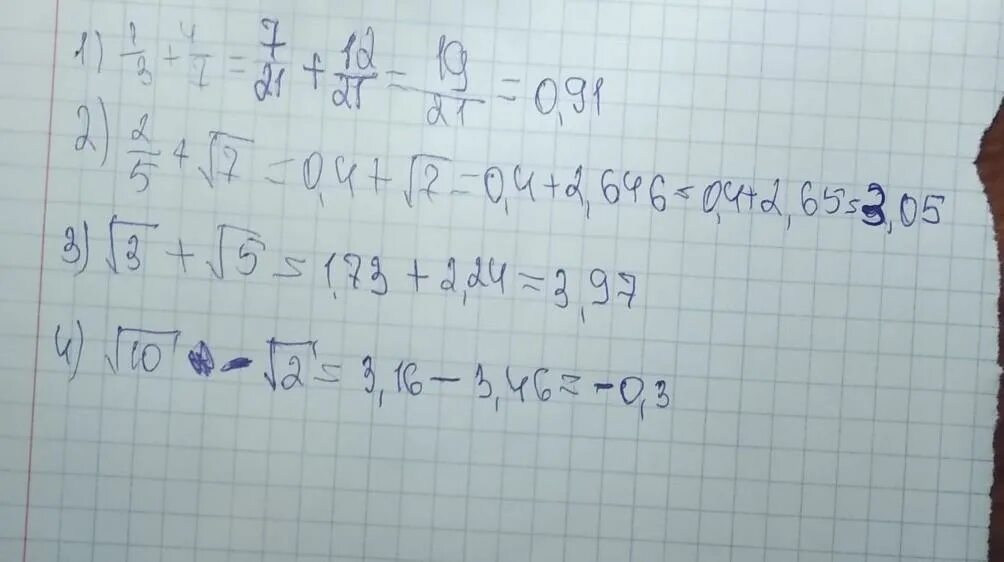 1) 1/3 + 4/7 = 7/21 + 12/21 = 19/21 = 0,91
2) 2/5 + √7 = 0,4 + √7 = 0,4 + 2,646 = 0,4 + 2,65 = 3,05
3) √3 + √5 = 1,73 + 2,24 = 3,97
4) √10 - √2 = 3,16 - 3,46 = -0,3